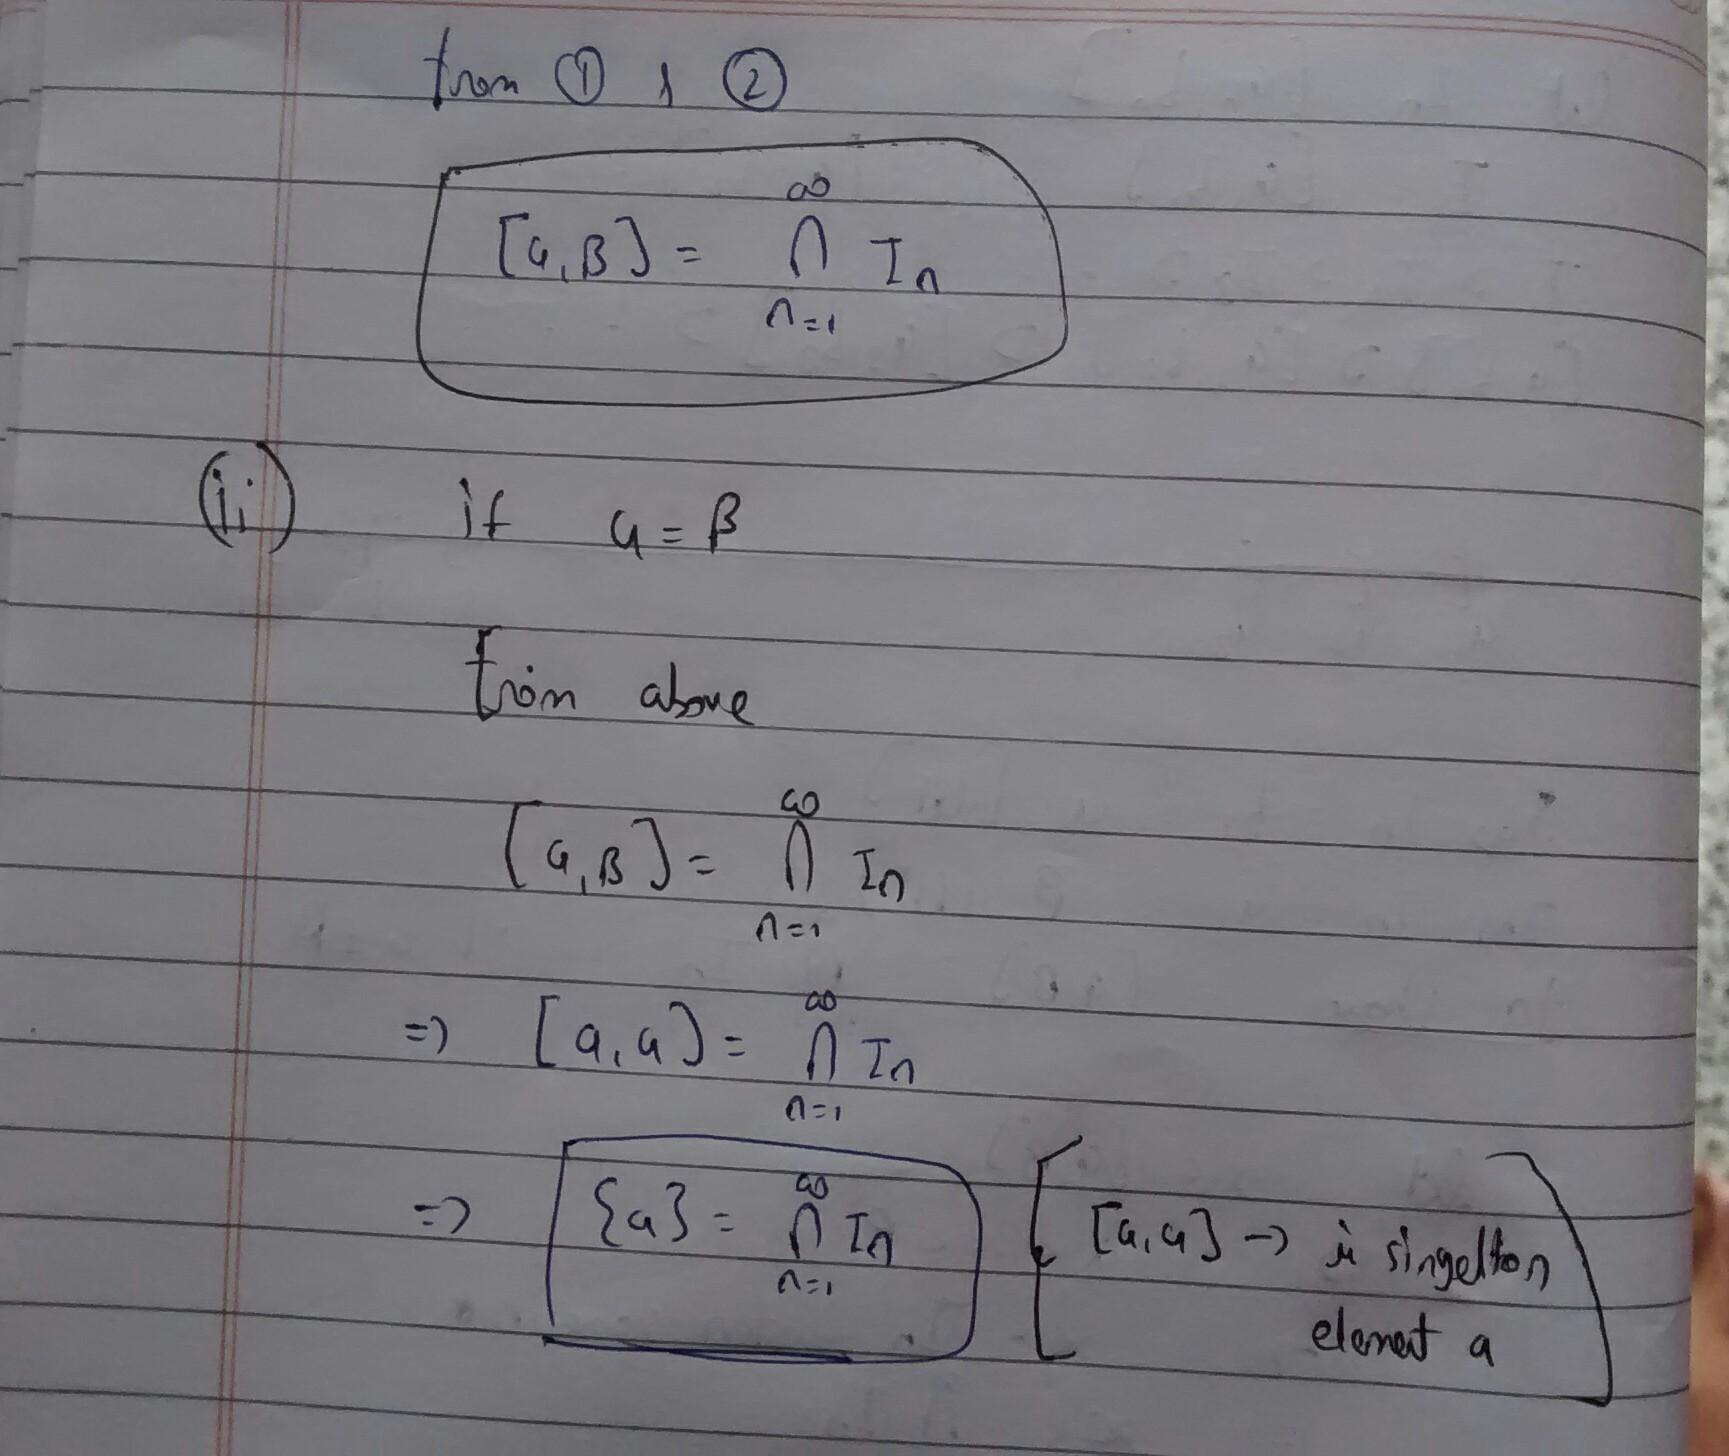 from ① & ②
[a, β] = ∞ ∩ n=1 In
(ii) if a = β
from above
[a, β] = ∞ ∩ n=1 In
=> [a, a] = ∞ ∩ n=1 In
=> {a} = ∞ ∩ n=1 In [ [a, a] -> is singelton
element a ]